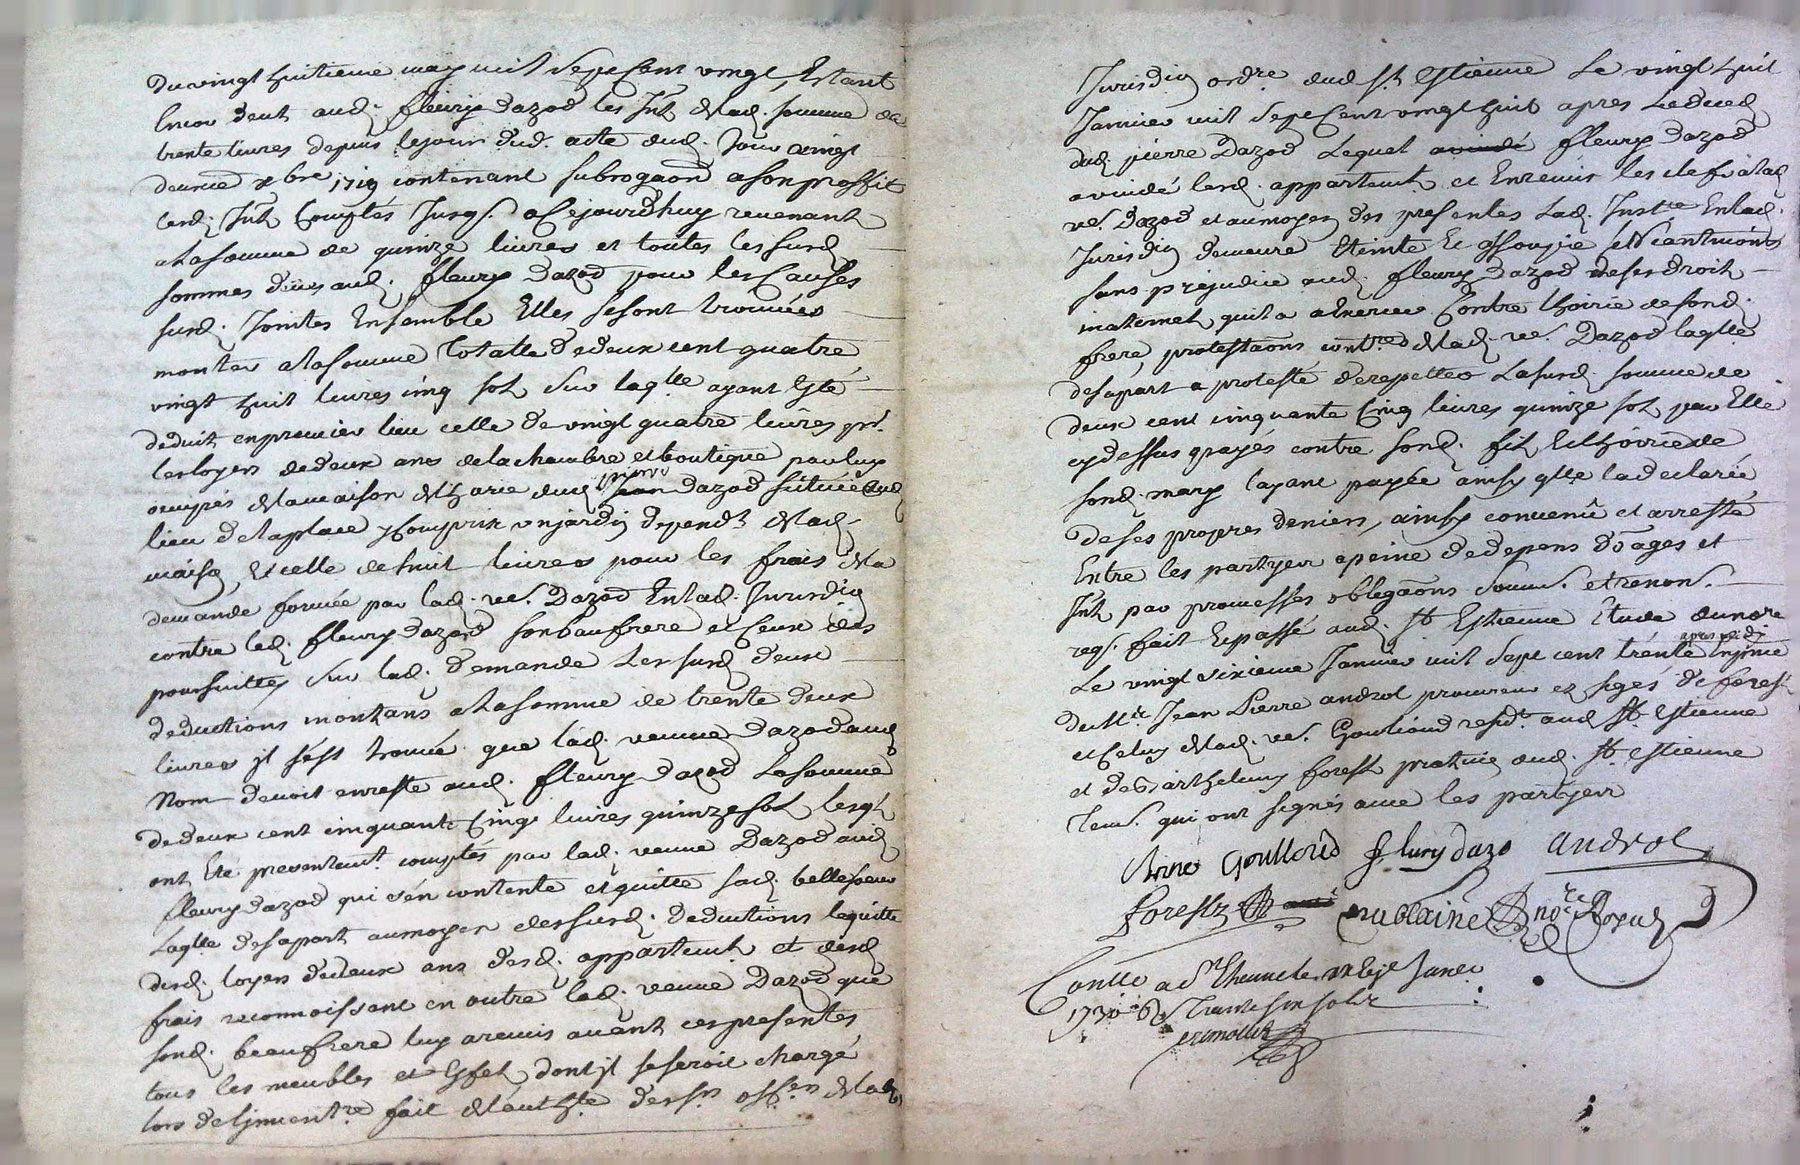 Du vingt huitieme may mil sept Cent vingt, Estant
Encor deub aud. fleury Dazod les Int. de lad. somme de
trente livres depuis le jour dud. acte dud. Jour vingt
deuxie xbre 1719 contenant subrogaon a son proffit
lesd. Int. Comptés Jusqs. a Cejourdhuy revenant
a la somme de quinze livres et toutes les susd.
sommes deües aud. fleury Dazod pour les Causes
susd. Jointes Ensemble Elles se sont trouvées
monter a la somme totalle de deux cent quatre
vingt huit livres cinq sols sur laqlle ayant Esté
deduit en premier lieu celle de vingt quatre livres pr.
les loyers de deux ans de la chambre et boutique par luy
occupés de la maison de hoirie dud. pierre Dazod située aud.
lieu de la place y Compris un jardin dependt. de lad.
maison, Et celle de huit livres pour les frais de la
demande formée par lad. ve. Dazod En lad. Jurisdion
contre led. fleury Dazod son beaufrere et Ceux des
poursuittes sur lad. demande les susd. deux
deductions montans a la somme de trente deux
livres jl s'est trouvé que lad. veuve Dazod aud.
Nom devoit en reste aud. fleury Dazod la somme
de deux cent cinquante Cinq livres quinze sols lesqls
ont Eté presentemt. comptés par lad. veuve Dazod aud.
fleury Dazod qui s'en contente et quitte sad. belle soeur
Laqlle de sa part au moyen des susd. deductions le quitte
desd. loyers de deux ans desd. appartemts. et desd.
frais reconnoissant en outre lad. veuve Dazod que
sond. beaufrere luy a remis avant ces presentes
tous les meubles et Effets dont jl se seroit chargé
lors de l'jnventre. fait de l'authte. des srs. offers. de la
Jurisdion ordre. dud. St. Estienne le vingt huit
Janvier mil sept Cent vingt huit apres le deced
dud. pierre Dazod Lequel fleury Dazod
a vuidé lesd. appartemts. et En remis les clefs a lad.
ve. Dazod et au moyen des presentes Lad. Instce En lad.
Jurisdion demeure Eteinte Et assoupie
sans prejudice aud. fleury Dazod de ses droits
maternels quil a a Exercer Contre lhoirie de sond.
frere, protestaons contre de lad. ve. Dazod laqlle
de sa part a protesté de repetter La susd. somme de
deux cent cinquante Cinq livres quinze sols par Elle
cy dessus payés contre sond. fils Et lhoirie de
sond. mary layant payée ainsy qlle la declarée
de ses propres deniers, ainsy convenû et arresté
Entre les partyes a peine de depens domages et
Int. par promesses obligaons soums. et renons.
reqs. fait Et passé aud. St. Estienne Etude du nore
Le vingt sixieme Janvier mil sept cent trente apres midi En pnce
de Me. Jean Pierre androl procureur es sieges de forest
et Celuy de lad. ve. Goulioud residt. aud. St. Estienne
et de Barthelemy forest praticien aud. St. Estienne
Tems. qui ont signés avec les partyes
Anne Goulloud fleury dazo androl
forest
Conlle a St Etienne le
1730